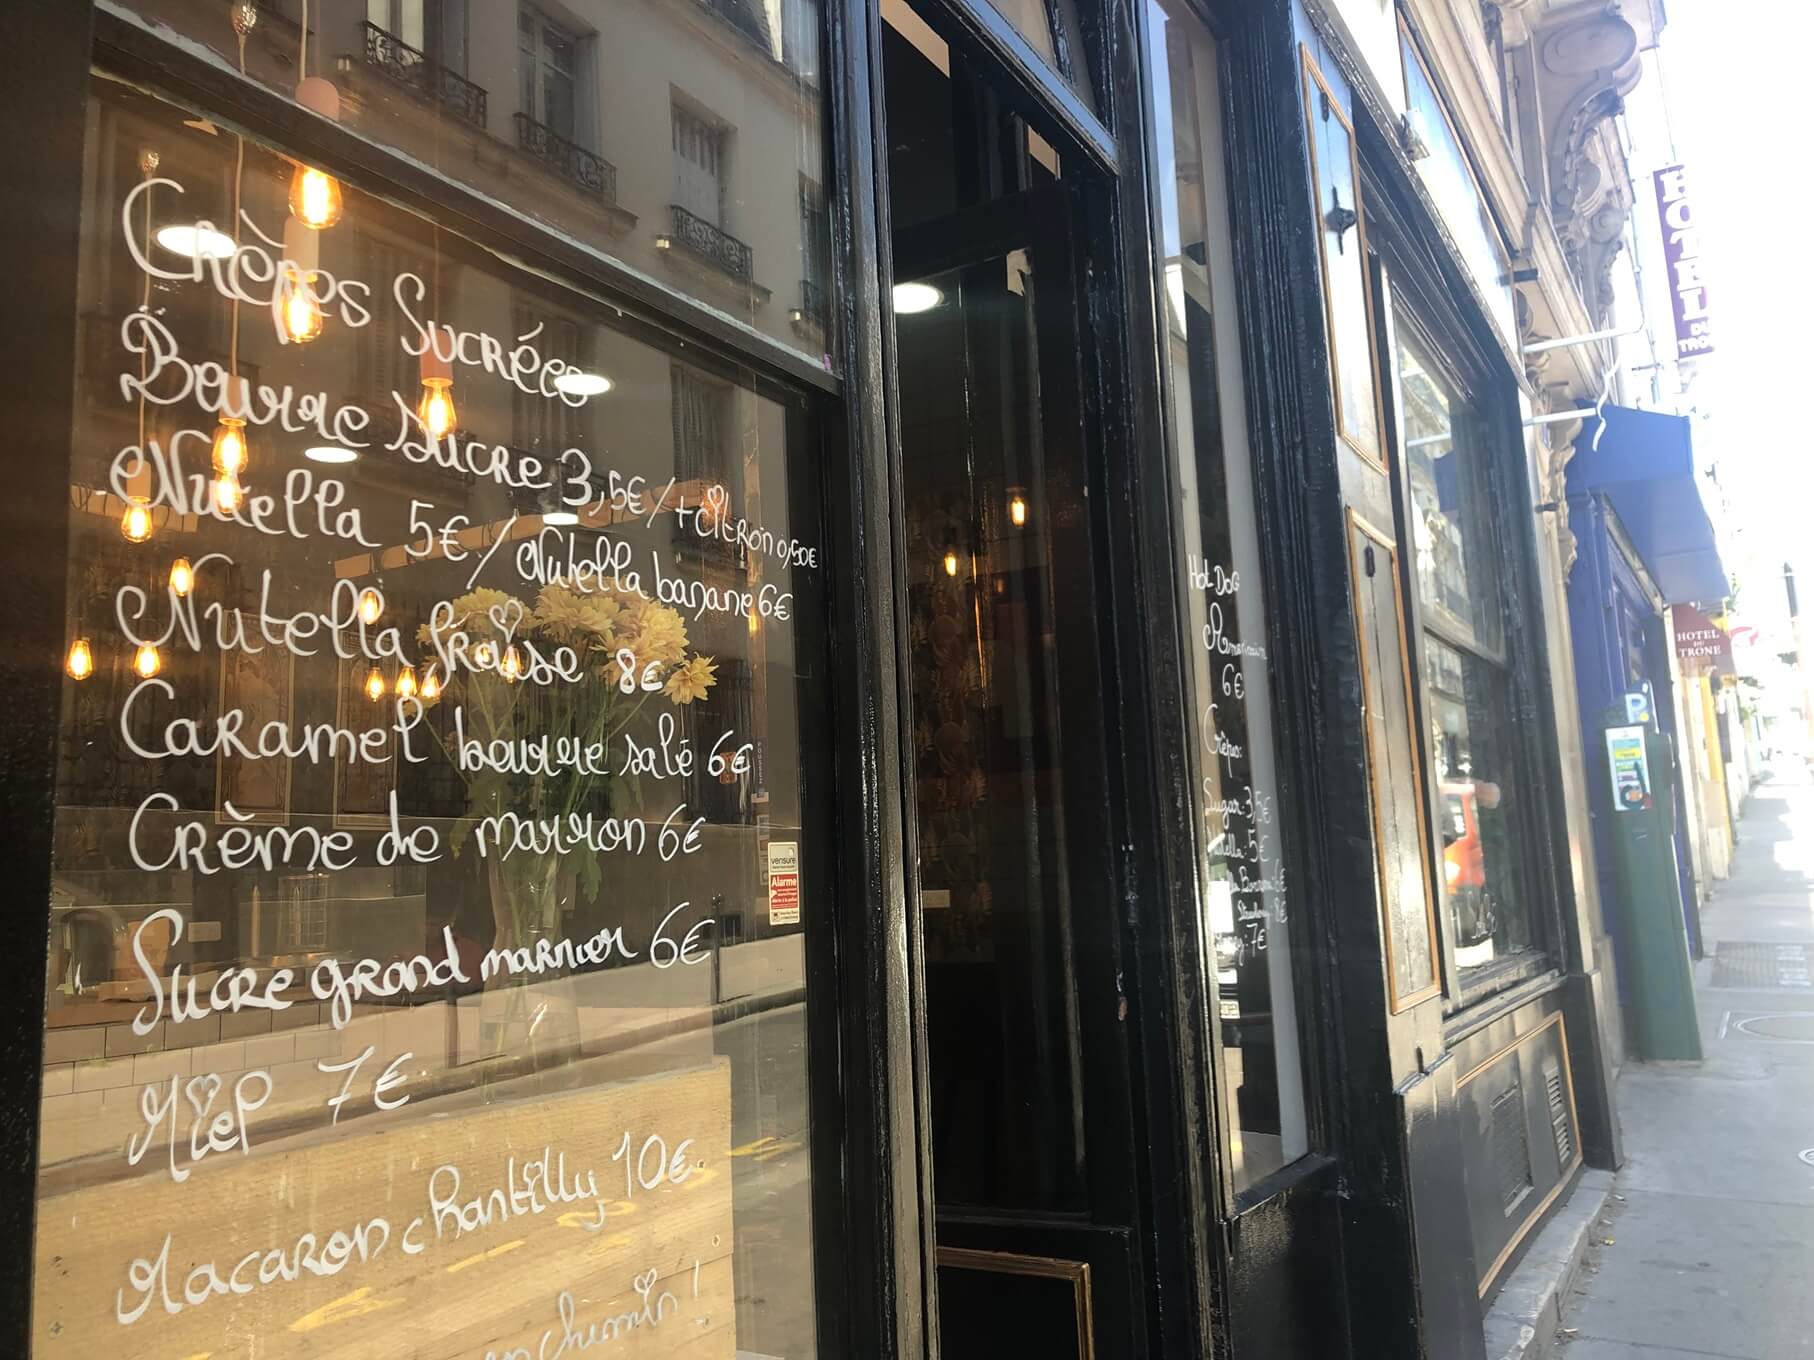 Crêpes Sucrées
Beurre sucre 3,5€ / + citron 0,50€
Nutella 5€ / Nutella banane 6€
Nutella fraise 8€
Caramel beurre salé 6€
Crème de marron 6€
Sucre grand marnier 6€
Miel 7€
Macaron chantilly 10€
chemin !
verisure
Alarme
Hot Dog
6€
Crêpes:
Sugar: 3,5€
5€
8€
7€
HOTEL
DU
TRO
HOTEL
DU
TRONE
P